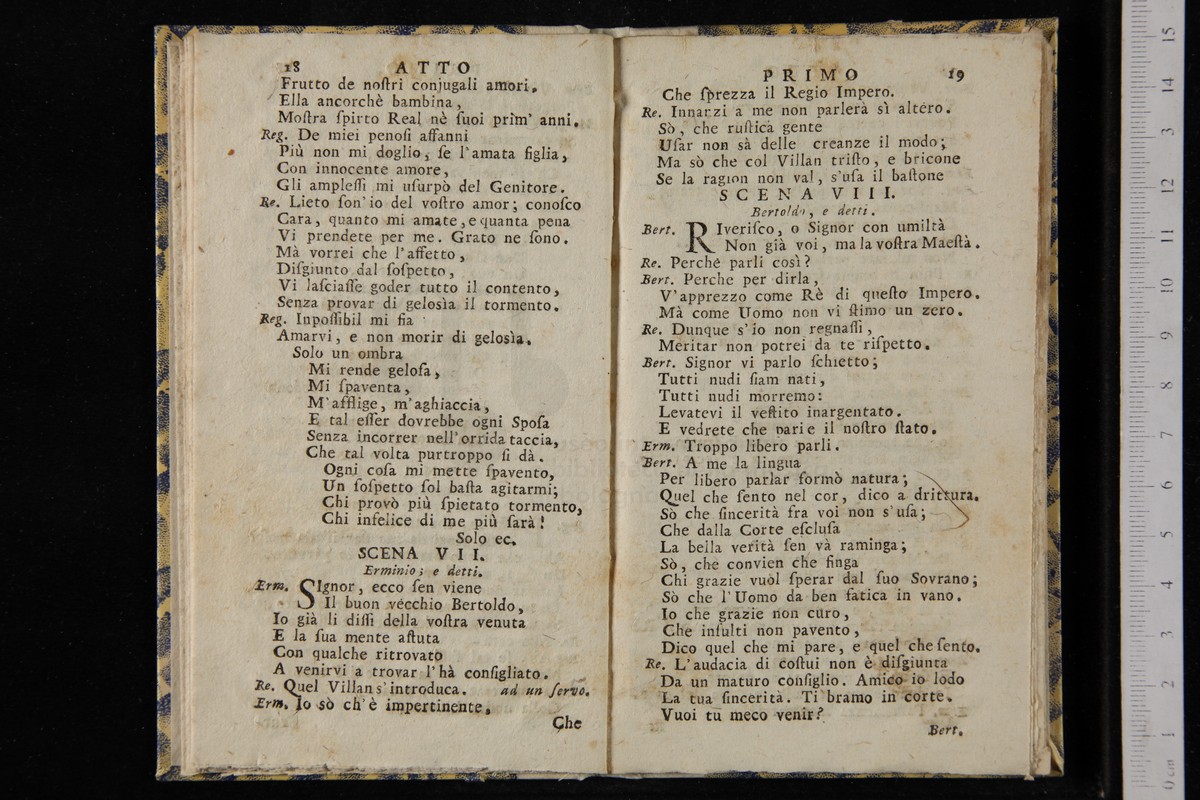 18 ATTO
Frutto de noſtri conjugali amori.
Ella ancorchè bambina,
Moſtra ſpirto Real nè ſuoi prìm' anni.
Reg. De miei penoſi affanni
Più non mi doglio, ſe l'amata figlia,
Con innocente amore,
Gli ampleſſi mi uſurpò del Genitore.
Re. Lieto ſon' io del voſtro amor; conoſco
Cara, quanto mi amate, e quanta pena
Vi prendete per me. Grato ne ſono.
Mà vorrei che l'affetto,
Diſgiunto dal ſoſpetto,
Vi laſciaſſe goder tutto il contento,
Senza provar di geloſìa il tormento.
Reg. Inpoſſibil mi fia
Amarvi, e non morir di geloſìa.
Solo un ombra
Mi rende geloſa,
Mi ſpaventa,
M'afflige, m'aghiaccia,
E tal eſſer dovrebbe ogni Spoſa
Senza incorrer nell'orrida taccia,
Che tal volta purtroppo ſi dà.
Ogni coſa mi mette ſpavento,
Un ſoſpetto ſol baſta agitarmi;
Chi provò più ſpietato tormento,
Chi infelice di me più ſarà!
Solo ec.
SCENA VII.
Erminio; e detti.
Erm. SIgnor, ecco ſen viene
Il buon vecchio Bertoldo,
Io già li diſſi della voſtra venuta
E la ſua mente aſtuta
Con qualche ritrovato
A venirvi a trovar l'hà conſigliato.
Re. Quel Villan s'introduca. ad un ſervo.
Erm. Io sò ch'è impertinente,
Che
PRIMO 19
Che ſprezza il Regio Impero.
Re. Innanzi a me non parlerà sì altero.
Sò, che ruſtica gente
Uſar non sà delle creanze il modo;
Ma sò che col Villan triſto, e bricone
Se la ragion non val, s'uſa il baſtone
SCENA VIII.
Bertoldo, e detti.
Bert. RIveriſco, o Signor con umiltà
Non già voi, ma la voſtra Maeſtà.
Re. Perchè parli così?
Bert. Perche per dirla,
V'apprezzo come Rè di queſto Impero.
Mà come Uomo non vi ſtimo un zero.
Re. Dunque s'io non regnaſſi,
Meritar non potrei da te riſpetto.
Bert. Signor vi parlo ſchietto;
Tutti nudi ſiam nati,
Tutti nudi morremo:
Levatevi il veſtito inargentato.
E vedrete che pari e il noſtro ſtato.
Erm. Troppo libero parli.
Bert. A me la lingua
Per libero parlar formò natura;
Quel che ſento nel cor, dico a drittura.
Sò che ſincerità fra voi non s'uſa;
Che dalla Corte eſcluſa
La bella verità ſen và raminga;
Sò, che convien che finga
Chi grazie vuòl ſperar dal ſuo Sovrano;
Sò che l'Uomo da ben fatica in vano.
Io che grazie non curo,
Che inſulti non pavento,
Dico quel che mi pare, e quel che ſento.
Re. L'audacia di coſtui non è diſgiunta
Da un maturo conſiglio. Amico io lodo
La tua ſincerità. Ti bramo in corte.
Vuoi tu meco venir?
Bert.
15
14
13
12
11
10
9
8
7
6
5
4
3
2
1
0 cm